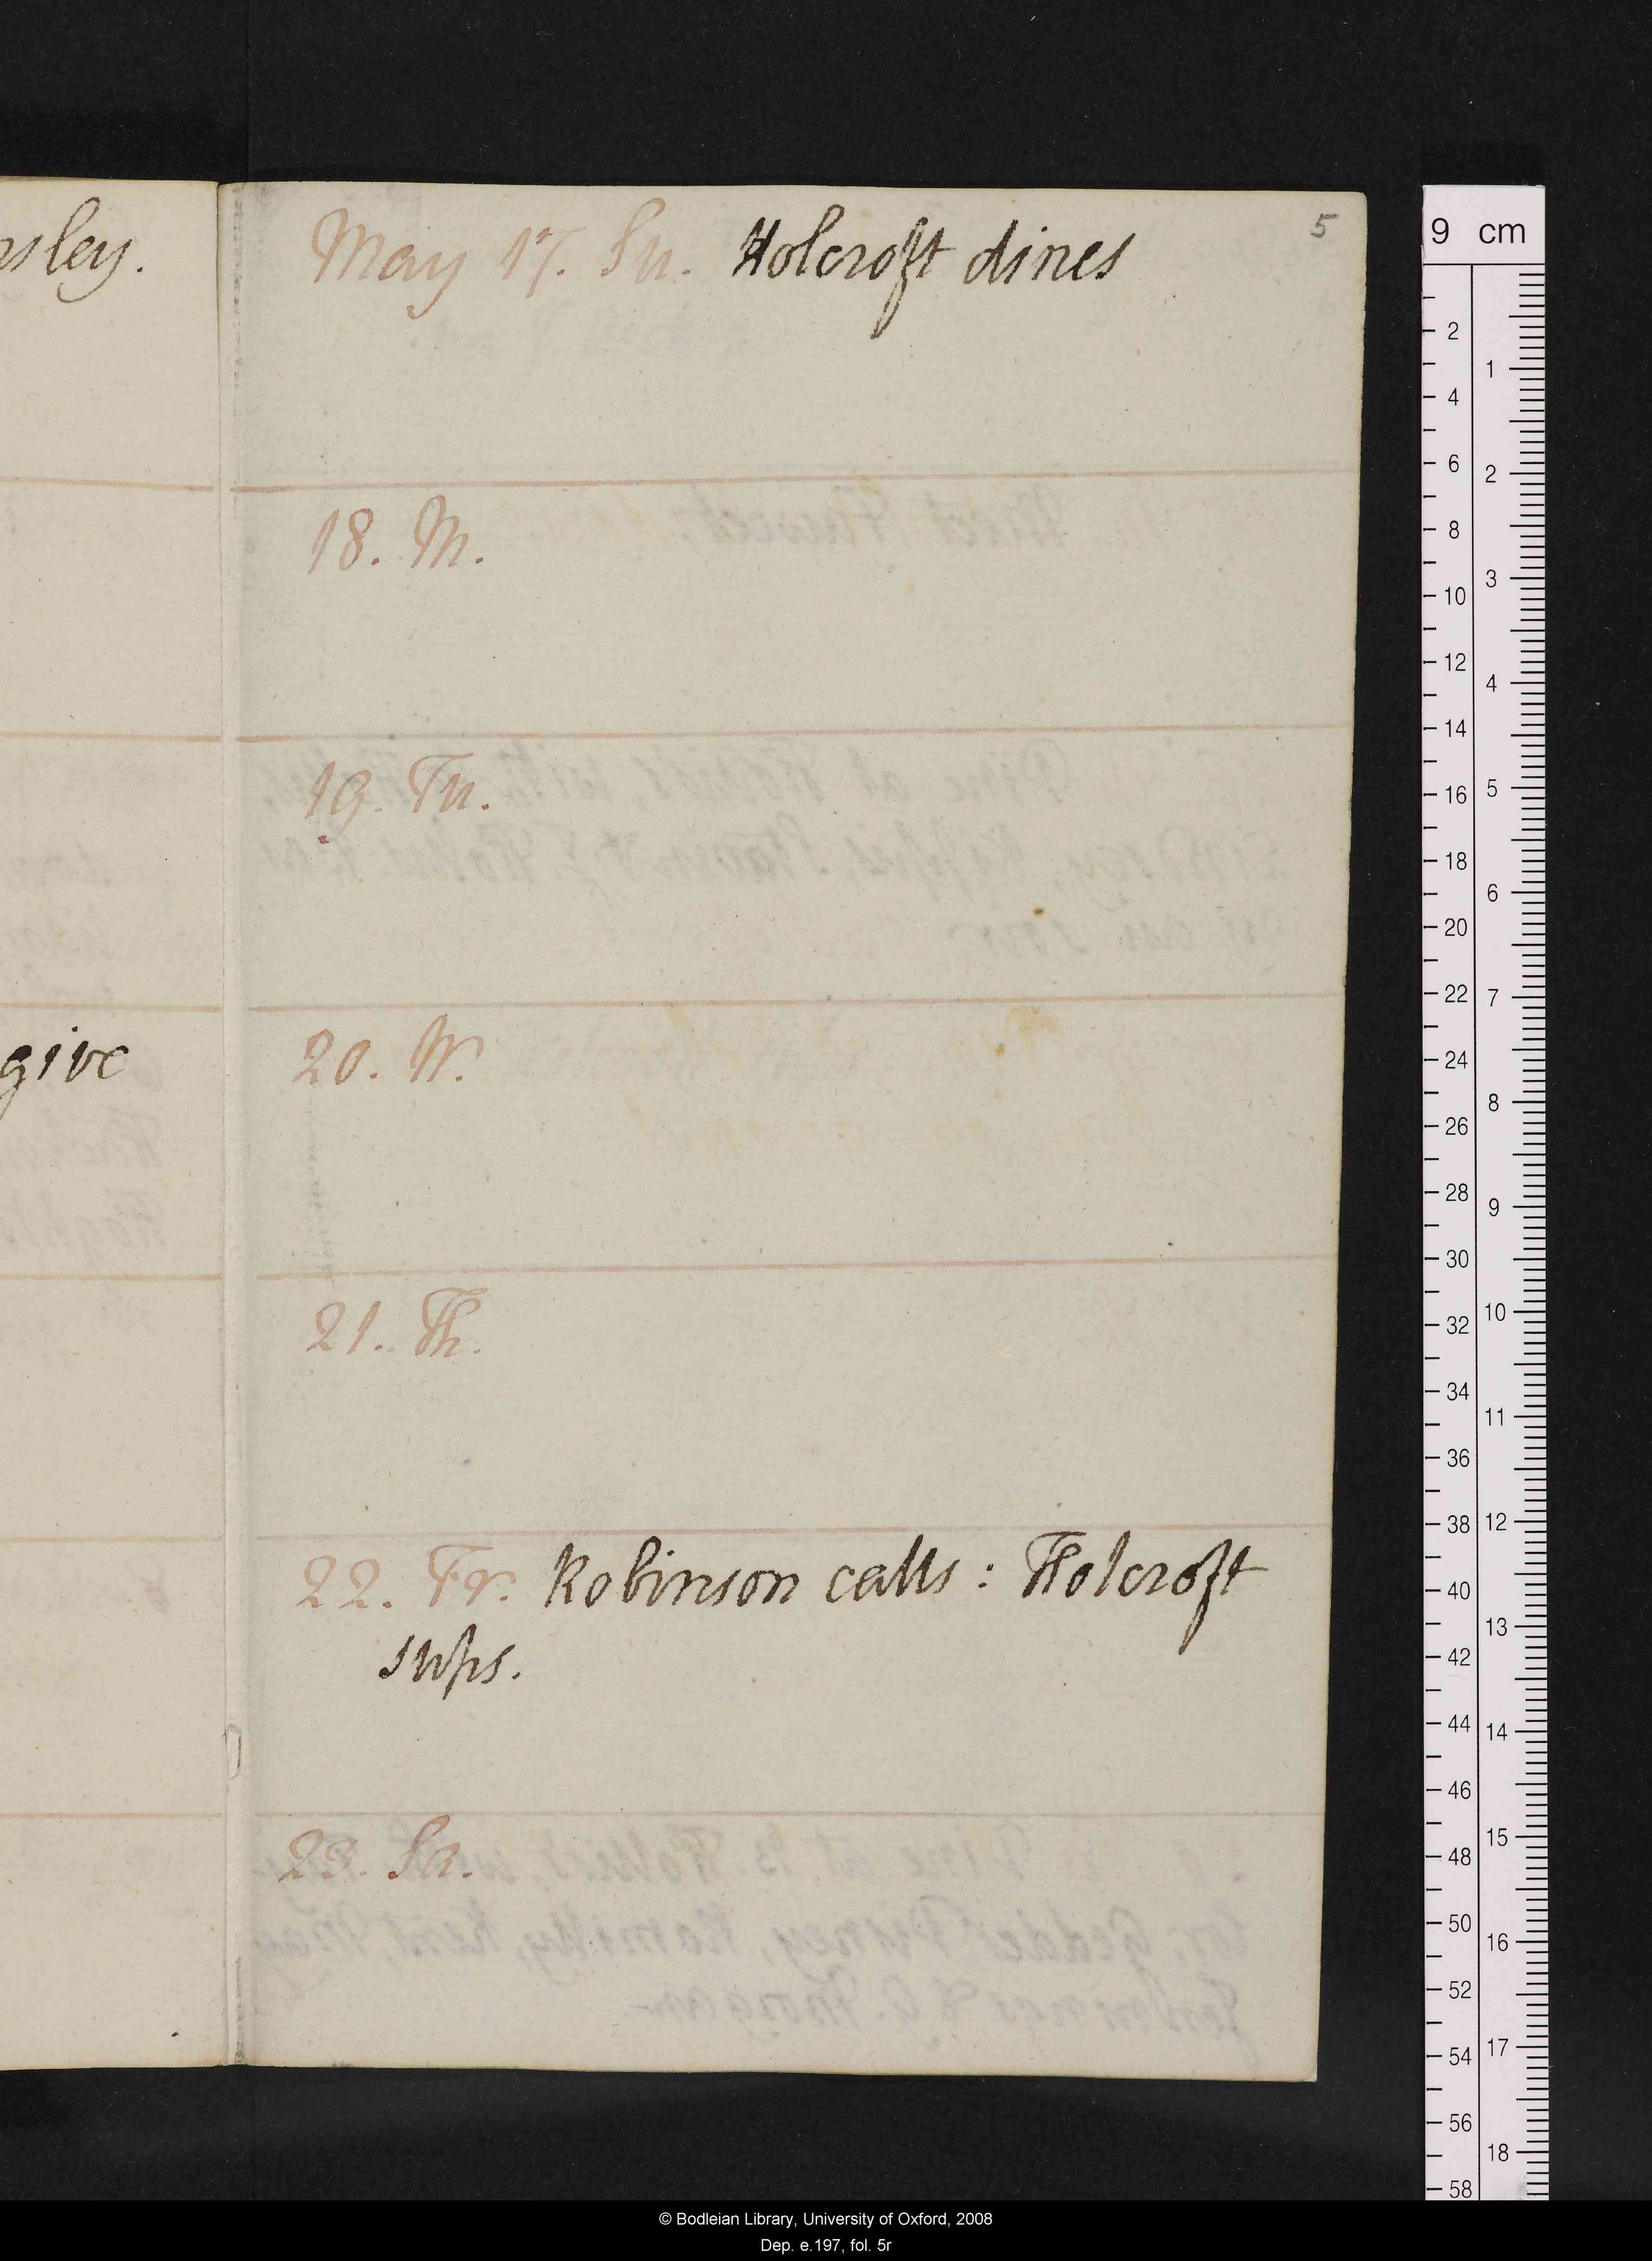 sley.
give
5
May 17. Su. Holcroft dines
18. M.
19. Tu.
20. W.
21. Th.
22. Fr. Robinson calls: Holcroft
sups.
23. Sa.
9 cm
2
4
6
8
10
12
14
16
18
20
22
24
26
28
30
32
34
36
38
40
42
44
46
48
50
52
54
56
58
1
2
3
4
5
6
7
8
9
10
11
12
13
14
15
16
17
18
© Bodleian Library, University of Oxford, 2008
Dep. e.197, fol. 5r